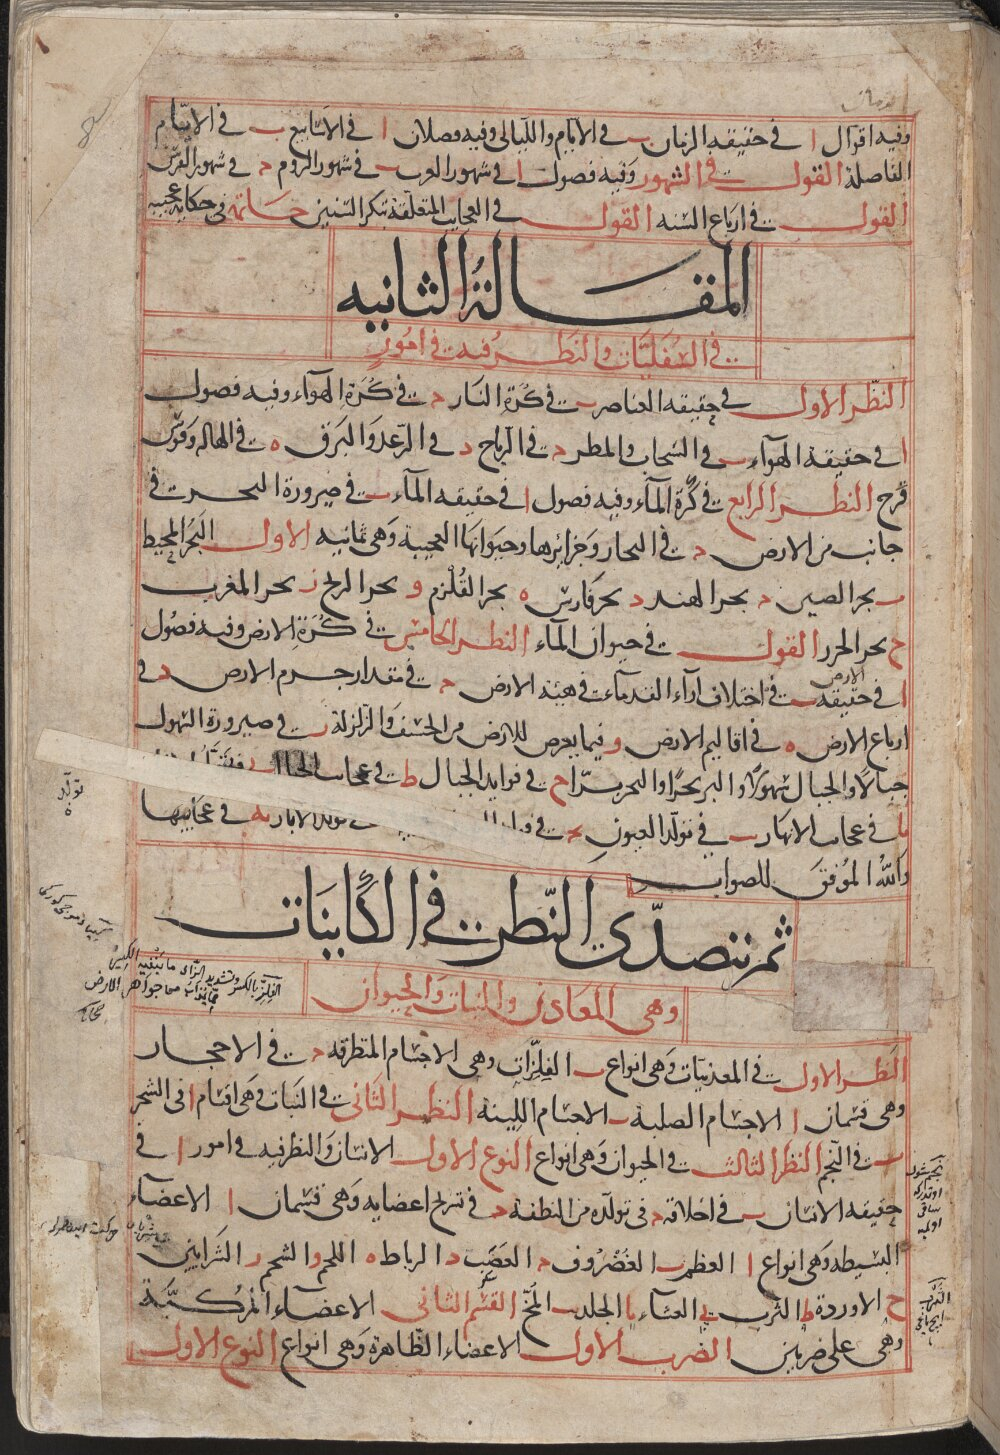 وفيه اقوال ا في حقيقة الزمان ب في الايام والليالي وفيه فصلان ا في الاسابيع ب في الايام
الفاضلة القول في الشهور وفيه فصول ا في شهور العرب ب في شهور الروم د في شهور الفرس
القول في ارباع السنه القول في العجايب المتعلقة بتكرر السنين خاتمة في حكاية عجيبه
المقالة الثانيه
في السفليات والنظر فيه في امور
النظر الاول في حقيقه العناصر ب في كرة النار د في كرة الهوآء وفيه فصول
ا في حقيقة الهوآء ب في السحاب والمطر د في الرياح د في الرعد والبرق ه في الهاله وقوس
قزح النظر الرابع في كرة المآء وفيه فصول ا في حقيقه المآء ب في صيرورة البحر في
جانب من الارض د في البحار وجزائرها وحيوانها العجيبة وهي ثمانيه الاول البحر المحيط
ب بحر الصين د بحر الهند د بحر فارس ه بحر القلزم و بحر الزنج ز بحر المغرب
ح بحر الخزر القول في حيوان المآء النظر الخامس في كرة الارض وفيه فصول
الارض
ا في حقيقه ب في اختلاف ارآء القدمآء في هيئة الارض د في مقدار جرم الارض د في
ارباع الارض ه في اقاليم الارض و فيما يعرض للارض من الخسف والزلزلة ز في صيرورة السهول
جبالا والجبال سهولا والبر بحرا والبحر برا ح في فوايد الجبال ط في عجايب الجبال
يا في عجايب الانهار ب في تولد العيون في تولد الابار يه في عجايبها
تولد
والله الموفق للصواب
ثم نتصدى النظر في الكاينات
وهي المعادن والنبات والحيوان
الفلز بالكسر وتشديد الزاى ما ينفيه الكير
مما يذاب من جواهر الارض
النظر الاول في المعدنيات وهي انواع ب الفلزات وهي الاجسام المتطرقه د في الاحجار
وهي قسمان ا الاجسام الصلبة ب الاجسام اللينة النظر الثاني في النبات وهي اقسام ا في الشجر
ب في النجم النظر الثالث في الحيوان وهي انواع النوع الاول الانسان والنظر فيه في امور ا في
حقيقه الانسان ب في اخلاقه د في تولده من النطفة د في تشريح اعضايه وهي قسمان ا الاعضآء
البسيطه وهي انواع ا العظم ب الغضروف د العصب د الرباط ه اللحم و الشحم ز الشرايين
ح الاوردة ط الثرب ي الغشآء يا الجلد ب المخ القسم الثاني الاعضآء المركبة
وهي على ضربين الضرب الاول الاعضاء الظاهرة وهي انواع النوع الاول